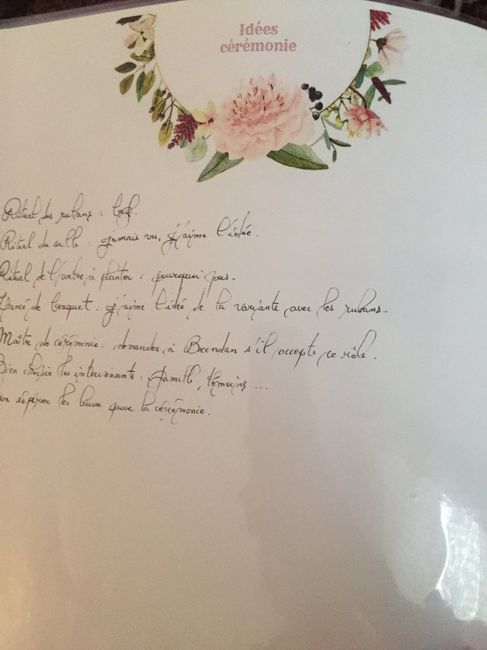 Idées
cérémonie
Rituel des rubans : bof.
Rituel du sable : jamais vu, j'aime l'idée.
Rituel de l'arbre à planter : pourquoi pas.
Lancé de bouquet : j'aime l'idée de la variante avec les rubans.
Maître de cérémonie : demander à Brendan s'il accepte ce rôle.
Bien choisir les intervenants : famille, témoins ...
repérer les lieux pour la cérémonie.